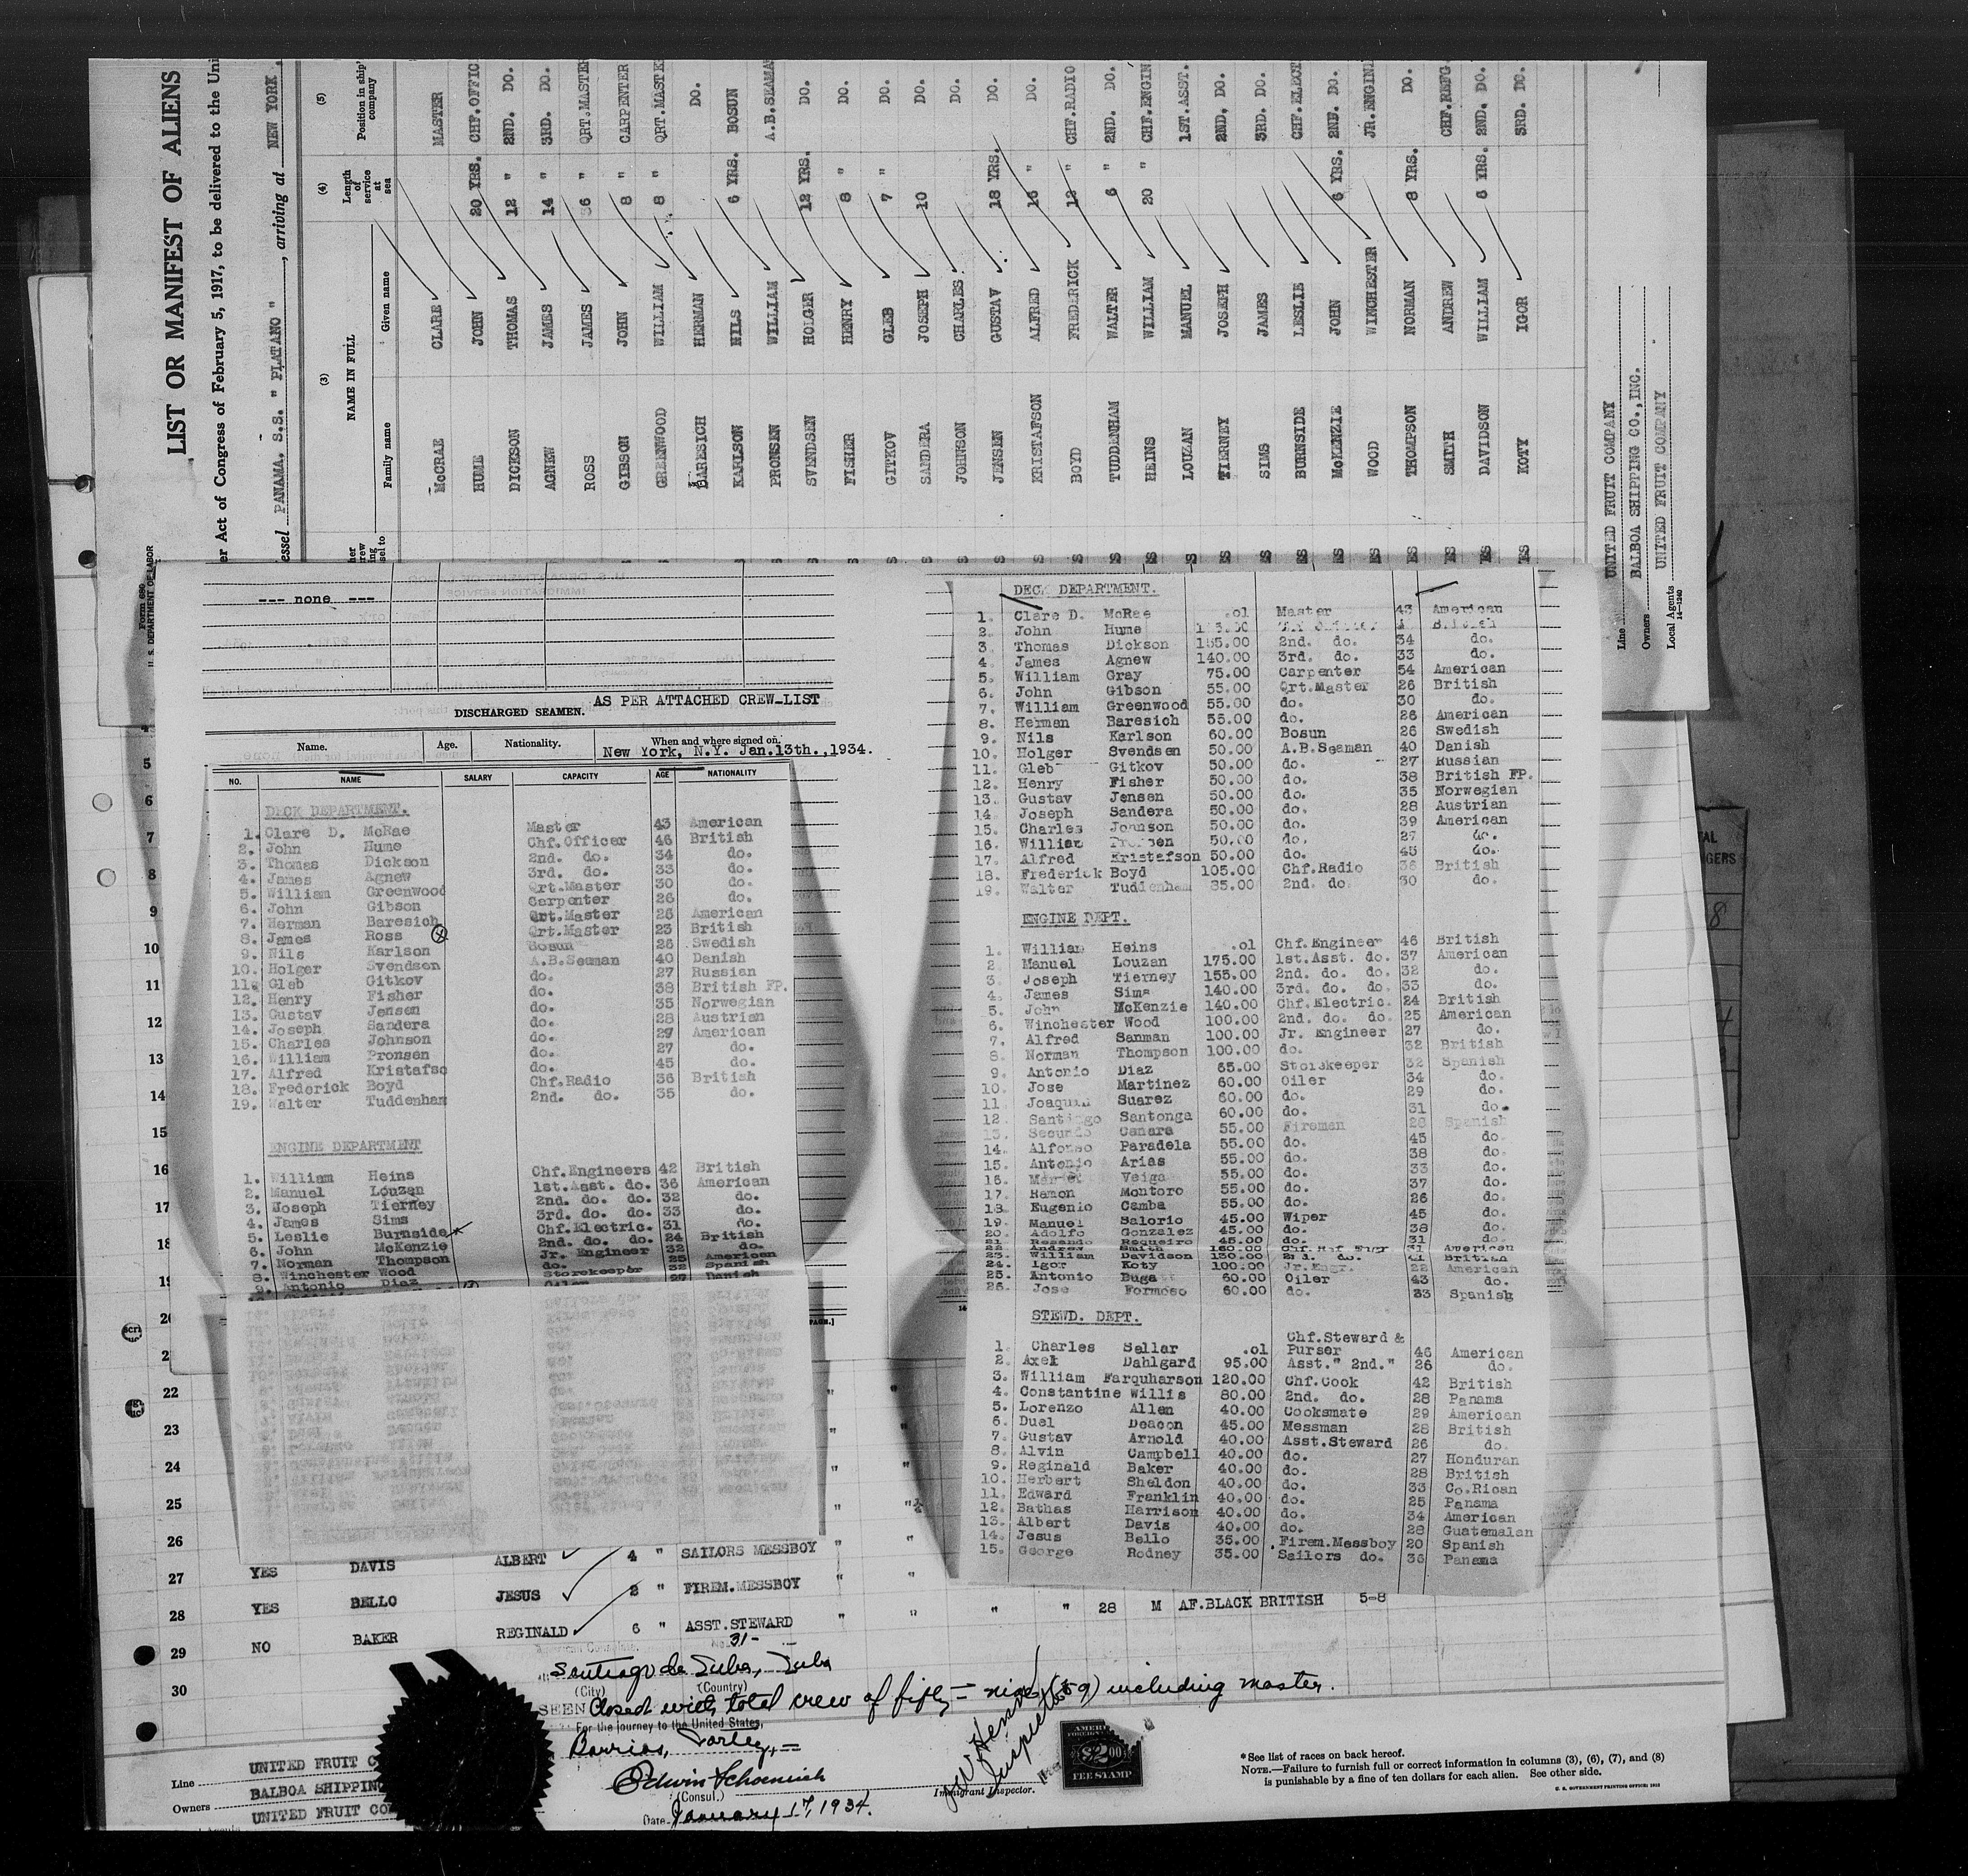 LIST OR MANIFEST OF ALIENS
er Act of Congress of February 5, 1917, to be delivered to the Uni
essel PANAMA. S.S. " PLATANO " , arriving at NEW YORK
(3) (4) (5)
NAME IN FULL Length of service at sea Position in ship' company
Family name Given name
McCRAE CLARE MASTER
HUME JOHN 20 YRS. CHF.OFFIC
DICKSON THOMAS 12 " 2ND. DO.
AGNEW JAMES 14 " 3RD. DO.
ROSS JAMES 6 " QRT.MASTER
GIBSON JOHN 8 " CARPENTER
GREENWOOD WILLIAM 8 " QRT.MASTE
BARESICH HERMAN DO.
KARLSON NILS 6 YRS. BOSUN
PRONSEN WILLIAM A.B.SEAMA
SVENDSEN HOLGER 12 YRS. DO.
FISHER HENRY 8 " DO.
GITKOV GLEB 7 " DO.
SANDERA JOSEPH 10 DO.
JOHNSON CHARLES DO.
JENSEN GUSTAV 18 YRS. DO.
KRISTAFSON ALFRED 16 " DO.
BOYD FREDERICK 12 " CHF.RADIO
TUDDENHAM WALTER 6 " 2ND. DO.
HEINS WILLIAM 20 " CHF.ENGIN
LOUZAN MANUEL 1ST.ASST.
TIERNEY JOSEPH 2ND. DO.
SIMS JAMES 3RD. DO.
BURNSIDE LESLIE CHF.ELECT
McKENZIE JOHN 6 YRS. 2ND. DO.
WOOD WINCHESTER JR.ENGINE
THOMPSON NORMAN 8 YRS. DO.
SMITH ANDREW CHF.REFG.
DAVIDSON WILLIAM 6 YRS. 2ND. DO.
KOTY IGOR 3RD. DO.
Line UNITED FRUIT COMPANY
Owners BALBOA SHIPPING CO., INC.
Local Agents UNITED FRUIT COMPANY
14—1240
Form 680
U. S. DEPARTMENT OF LABOR
--- none ---
AS PER ATTACHED CREW-LIST
DISCHARGED SEAMEN.
Name. Age. Nationality. When and where signed on.
New York, N.Y. Jan.13th.,1934.
NO. NAME SALARY CAPACITY AGE NATIONALITY
DECK DEPARTMENT.
1. Clare D. McRae Master 43 American
2. John Hume Chf.Officer 46 British
3. Thomas Dickson 2nd. do. 34 do.
4. James Agnew 3rd. do. 33 do.
5. William Greenwood Qrt.Master 30 do.
6. John Gibson Carpenter 26 do.
7. Herman Baresich Qrt.Master 26 American
8. James Ross Qrt.Master 23 British
9. Nils Karlson Bosun 26 Swedish
10. Holger Svendsen A.B.Seaman 40 Danish
11. Gleb Gitkov do. 27 Russian
12. Henry Fisher do. 38 British FP.
13. Gustav Jensen do. 35 Norwegian
14. Joseph Sandera do. 28 Austrian
15. Charles Johnson do. 29 American
16. William Pronsen do. 27 do.
17. Alfred Kristafso do. 45 do.
18. Frederick Boyd Chf.Radio 36 British
19. Walter Tuddenham 2nd. do. 35 do.
ENGINE DEPARTMENT
1. William Heins Chf.Engineers 42 British
2. Manuel Louzan 1st.Asst. do. 36 American
3. Joseph Tierney 2nd. do. do. 32 do.
4. James Sims 3rd. do. do. 33 do.
5. Leslie Burnside Chf.Electric. 31 do.
6. John McKenzie 2nd. do. do. 24 British
7. Norman Thompson Jr. Engineer 32 do.
8. Winchester Wood do. 25 American
9. Antonio Diaz Storekeeper 32 Spanish
DECK DEPARTMENT.
1. Clare D. McRae .01 Master 43 American
2. John Hume British
3. Thomas Dickson 155.00 2nd. do. 34 do.
4. James Agnew 140.00 3rd. do. 33 do.
5. William Gray 75.00 Carpenter 54 American
6. John Gibson 55.00 Qrt.Master 26 British
7. William Greenwood 55.00 do. 30 do.
8. Herman Baresich 55.00 do. 26 American
9. Nils Karlson 60.00 Bosun 26 Swedish
10. Holger Svendsen 50.00 A.B.Seaman 40 Danish
11. Gleb Gitkov 50.00 do. 27 Russian
12. Henry Fisher 50.00 do. 38 British FP.
13. Gustav Jensen 50.00 do. 35 Norwegian
14. Joseph Sandera 50.00 do. 28 Austrian
15. Charles Johnson 50.00 do. 39 American
16. William 50.00 do. 27 do.
17. Alfred Kristafson 50.00 do. 45 do.
18. Frederick Boyd 105.00 Chf.Radio 36 British
19. Walter Tuddenham 85.00 2nd. do 30 do.
ENGINE DEPT.
1. William Heins .01 Chf.Engineer 46 British
2. Manuel Louzan 175.00 1st.Asst. do. 37 American
3. Joseph Tierney 155.00 2nd. do. do. 32 do.
4. James Sims 140.00 3rd. do. do. 33 do.
5. John McKenzie 140.00 Chf.Electric. 24 British
6. Winchester Wood 100.00 2nd. do. do. 25 American
7. Alfred Sanman 100.00 Jr. Engineer 27 do.
8. Norman Thompson 100.00 do. 32 British
9. Antonio Diaz 65.00 Storekeeper 32 Spanish
10. Jose Martinez 60.00 Oiler 34 do.
11. Joaquin Suarez 60.00 do. 29 do.
12. Santiago Santonga 60.00 do. 31 do.
13. Secundo Canara 55.00 Fireman 28 Spanish
14. Alfonso Paradela 55.00 do. 45 do.
15. Antonio Arias 55.00 do. 38 do.
16. Veiga 55.00 do. 33 do.
17. Ramon Montoro 55.00 do. 37 do.
18. Eugenio Camba 55.00 do. 26 do.
19. Manuel Salorio 45.00 Wiper 45 do.
20. Adolfo Gonzalez 45.00 do. 38 do.
21. Requeiro 45.00 do. 31 do.
22. Andrew Smith 31 American
23. William Davidson 130.00 British
24. Igor Koty 100.00 Jr.Engr. 22 American
25. Antonio Buga 60.00 Oiler 43 do.
26. Jose Formoso 60.00 do. 33 Spanish
STEWD. DEPT.
1. Charles Sellar .01 Chf.Steward & Purser 46 American
2. Axel Dahlgard 95.00 Asst." 2nd." 26 do.
3. William Farquharson 120.00 Chf.Cook 42 British
4. Constantine Willis 80.00 2nd. do. 28 Panama
5. Lorenzo Allen 40.00 Cooksmate 29 American
6. Duel Deacon 45.00 Messman 28 British
7. Gustav Arnold 40.00 Asst.Steward 26 do.
8. Alvin Campbell 40.00 do. 27 Honduran
9. Reginald Baker 40.00 do. 28 British
10. Herbert Sheldon 40.00 do. 33 Co.Rican
11. Edward Franklin 40.00 do. 25 Panama
12. Bathas Harrison 40.00 do. 34 American
13. Albert Davis 40.00 do. 28 Guatemalan
14. Jesus Bello 35.00 Firem.Messboy 20 Spanish
15. George Rodney 35.00 Sailors do. 36 Panama
4
5
6
7
8
9
10
11
12
13
14
15
16
17
18
19
20
22
23
24
25
26
27 YES DAVIS ALBERT 4 " SAILORS MESSBOY " "
28 YES BELLO JESUS 2 " FIREM.MESSBOY " "
29 NO BAKER REGINALD 6 " ASST.STEWARD " " " " 28 M AF.BLACK BRITISH 5-8
30
No. 31-
Santiago de Cuba, Cuba
(City) (Country)
SEEN Closed with total crew of fifty-nine (59) including master.
For the journey to the United States,
Barrios, Cortez, =
Edwin Schoenrich
(Consul.)
Date January 17, 1934.
Inspector
Immigrant Inspector.
$2.00
FEE STAMP
Line UNITED FRUIT C
Owners BALBOA SHIPPIN
UNITED FRUIT CO
* See list of races on back hereof.
NOTE.—Failure to furnish full or correct information in columns (3), (6), (7), and (8)
is punishable by a fine of ten dollars for each alien. See other side.
U. S. GOVERNMENT PRINTING OFFICE: 1932